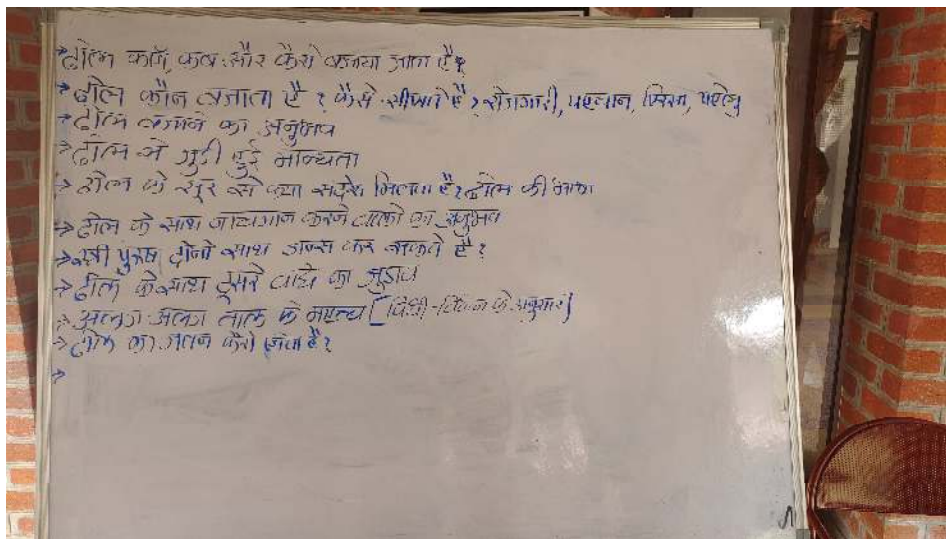 → ढोल कहाँ, कब और कैसे बजाया जाता है?
→ ढोल कौन बजाता है? कैसे सीखते है? रोजगारी, पहचान,
→ ढोल बजाने का अनुभव
→ ढोल से जुडी हुई मान्यता
→ ढोल के सूर से क्या संदेश मिलता है? ढोल की भाषा
→ ढोल के साथ नाचगान करने वालो का अनुभव
→ स्त्री पुरुष दोनो साथ डान्स कर सकते है?
→ ढोल के साथ दूसरे वाद्यो का जुडाव
→ अलग अलग ताल के महत्व [विधी-विधान के अनुसार]
→ ढोल का जतन कैसे होता है?
→